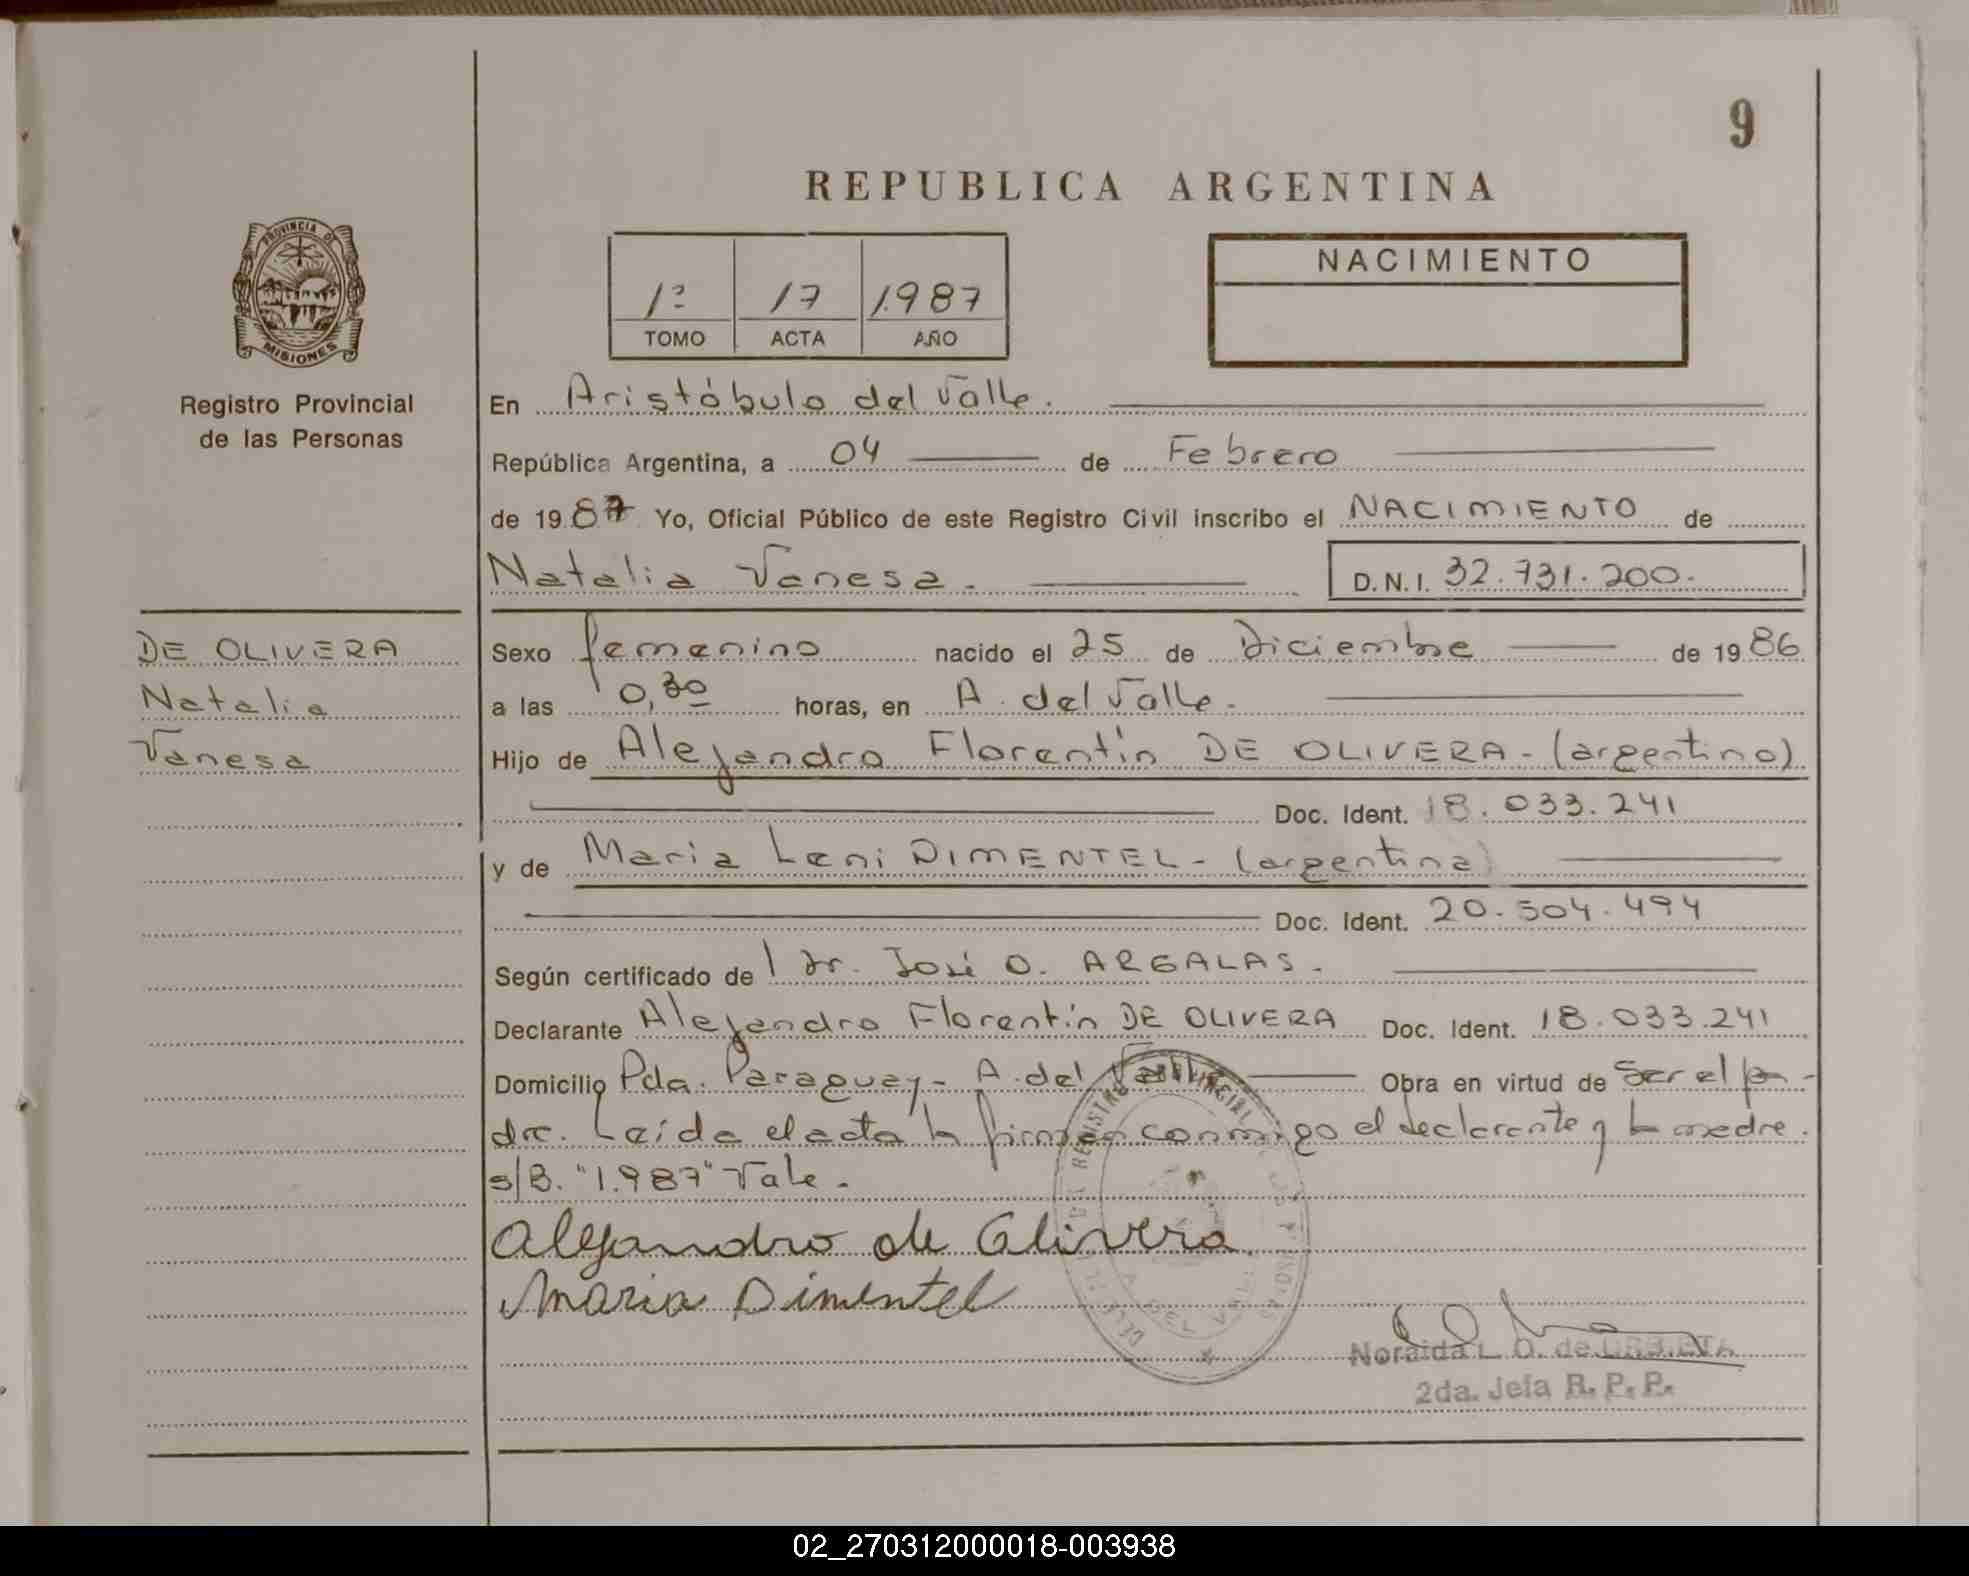 9
REPUBLICA ARGENTINA
PROVINCIA DE
MISIONES
Registro Provincial
de las Personas
1º 17 1.987
TOMO ACTA AÑO
NACIMIENTO
En Aristóbulo del Valle.
República Argentina, a 04 de Febrero
de 1987 Yo, Oficial Público de este Registro Civil inscribo el NACIMIENTO de
Natalia Vanesa. D.N.I. 32.731.200.
DE OLIVERA
Natalia
Vanesa
Sexo femenino nacido el 25 de Diciembre de 1986
a las 0,30 horas, en A. del Valle.
Hijo de Alejandro Florentín DE OLIVERA - (argentino)
Doc. Ident. 18.033.241
y de Maria Leni DIMENTEL - (argentina)
Doc. Ident. 20.504.494
Según certificado de Dr. José O. ARGALAS.
Declarante Alejandro Florentín DE OLIVERA Doc. Ident. 18.033.241
Domicilio Pda. Paraguay - A. del Valle Obra en virtud de Ser el pa-
dre. Leída el acta la firman conmigo el declarante y la madre.
s/B. "1.987" Vale.
Alejandro de Olivera
Maria Dimentel
Noraida L. O. de
2da. Jefa R. P. P.
02_270312000018-003938